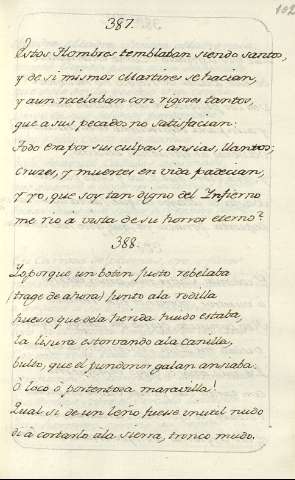 102
387.
Estos Hombres temblaban siendo santos,
y de si mismos Martires se hacian,
y aun recelaban con rigores tantos,
que a sus pecados no satisfacian:
Todo era por sus culpas, ansias, llantos;
cruzes, y muertes en vida padecian,
y yo, que soy tan digno del Infierno
me rio á vista de su horror eterno?
388.
Lo porque un botin justo rebelaba
(trage de ahora) junto ala rodilla
huesso que dela herida hudo estaba,
la lisura estorvando ala canilla,
bulto, que el pundonor galan ansiaba.
ò loco ò portentosa maravilla!
Qual si de un leño fuesse inutil nudo
dì à cortarlo àla sierra, tronco mudo.